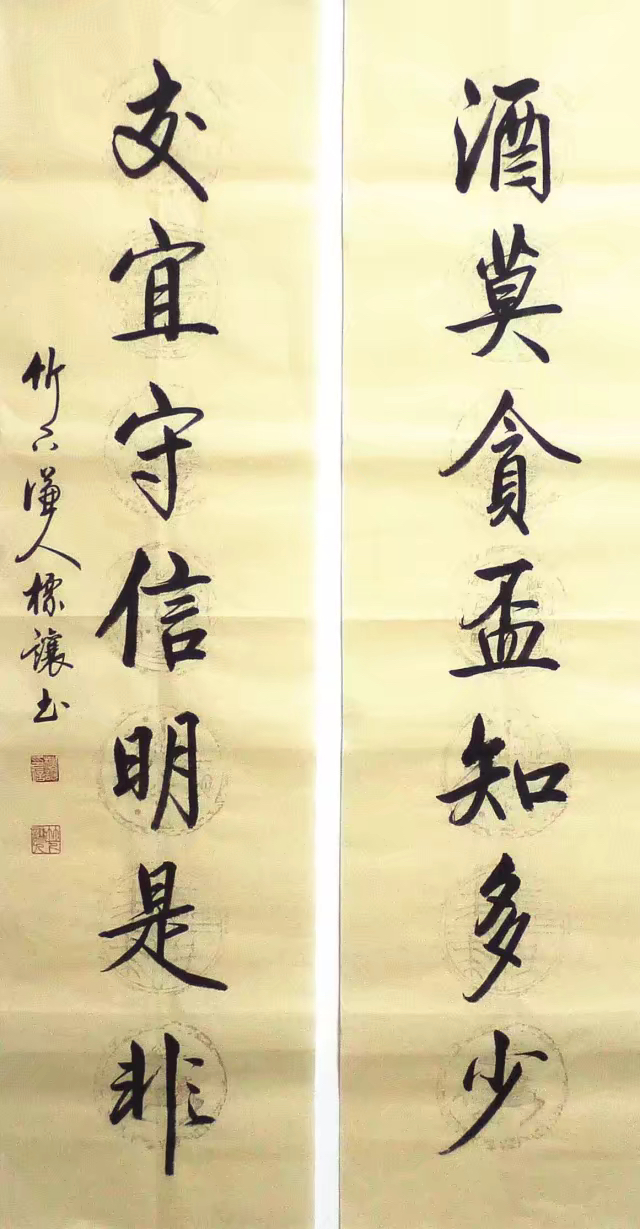 酒莫貪盃知多少
交宜守信明是非
竹下谦人標讓书